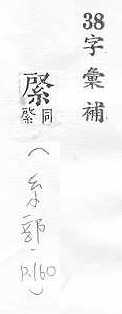 38
字彙補
同綮
(糸部
p.160)